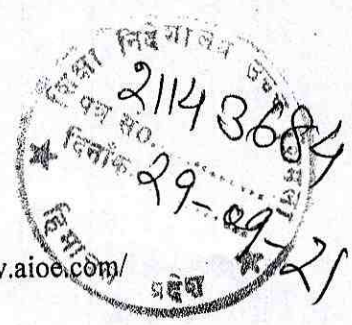 शिक्षा निदेशालय उच्च
पत्र सं०
21143684
दिनांक 29-09-21
हिमाचल प्रदेश
y.aioe.com/